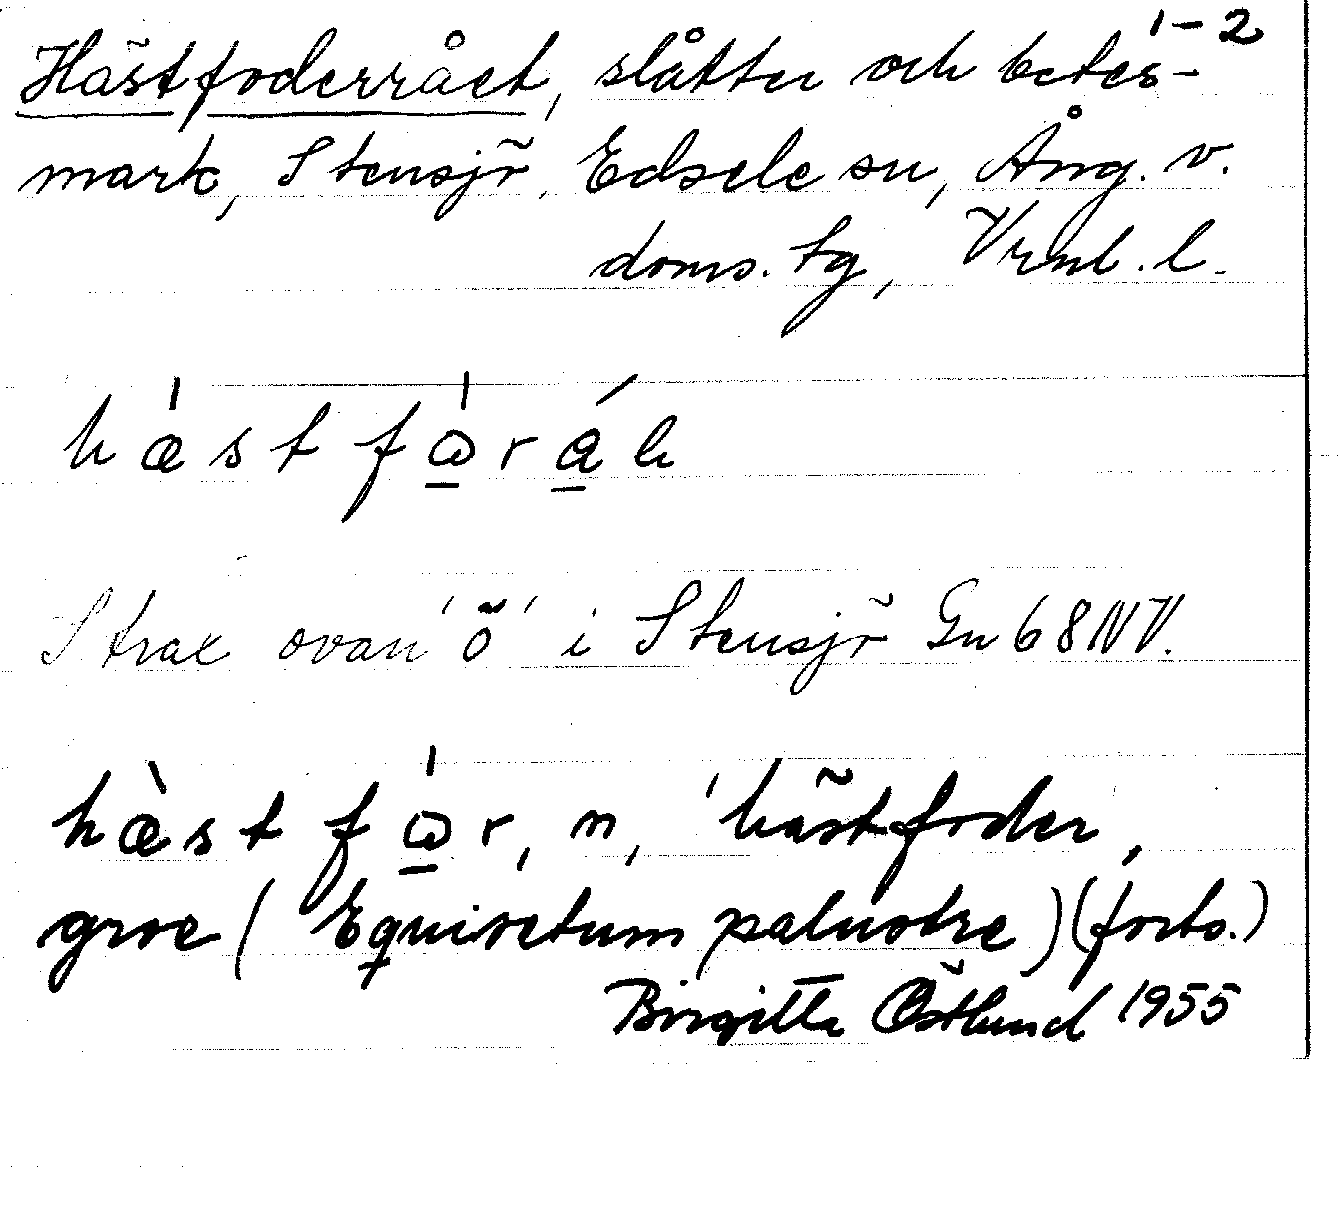 1-2
Hästfoderrået, slåtter och betes-
mark, Stensjö, Edsele sn, Ång. v.
doms. tg, Vrnl. l.
hæst fωrak
Strax ovan 'ö' i Stensjö Gn 68NV.
hæst fωr, n, 'hästfoder,
groe (Equisetum palustre) (forts.)
Birgitta Östlund 1955